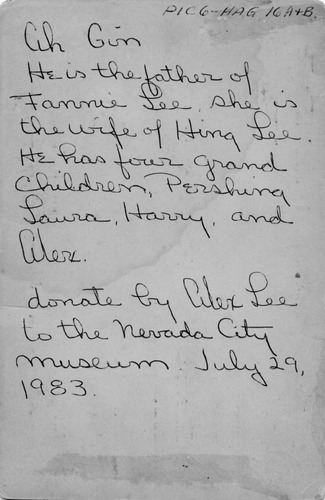 PIC6-HAG 16A+B.
Ah Gin
He is the father of
Fannie Lee, she is
the wife of Hing Lee.
He has four grand
Children, Pershing
Laura, Harry, and
Alex.
donate by Alex Lee
to the Nevada City
museum. July 29,
1983.